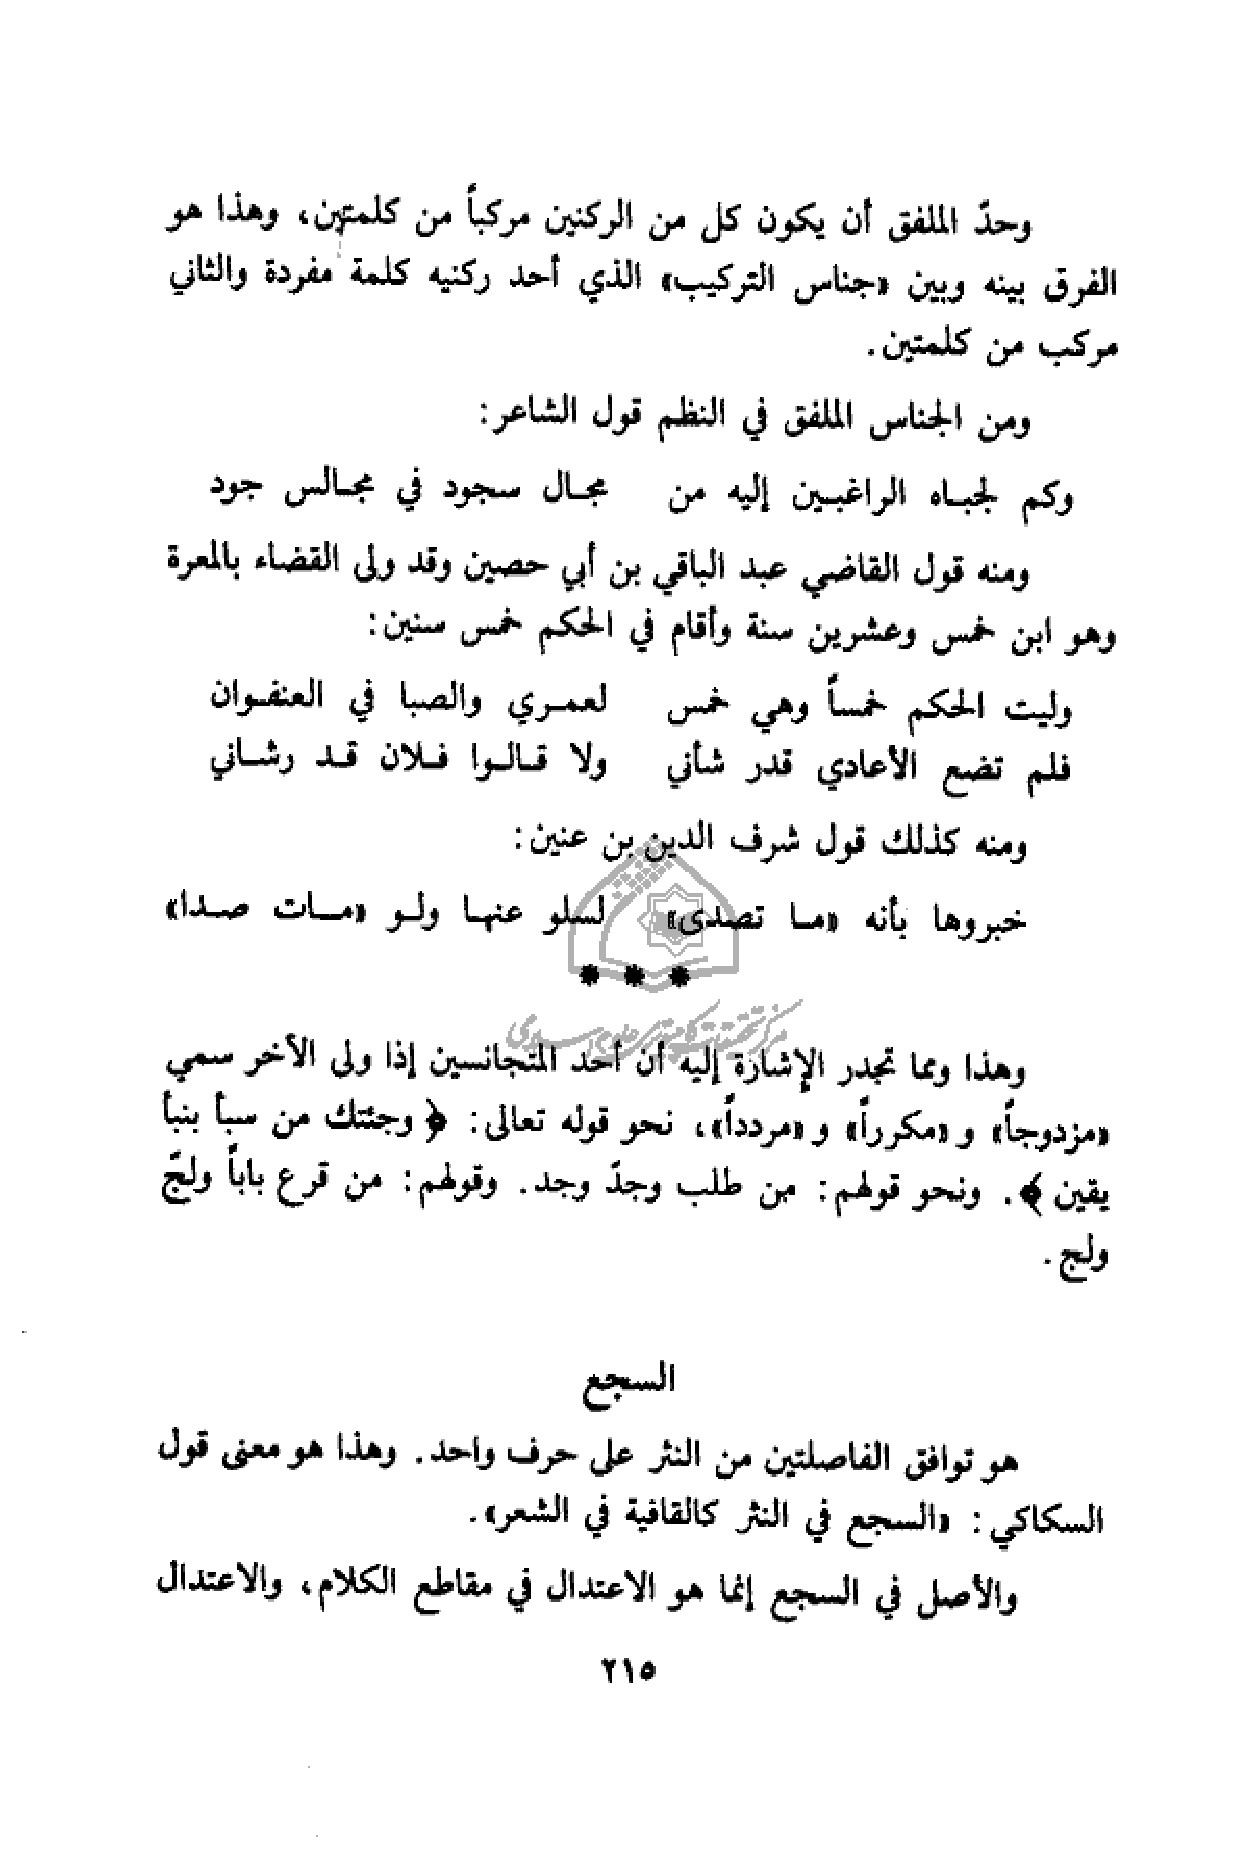 وحدّ الملفق أن يكون كل من الركنين مركباً من كلمتين، وهذا هو
الفرق بينه وبين «جناس التركيب» الذي أحد ركنيه كلمة مفردة والثاني
مركب من كلمتين.
ومن الجناس الملفق في النظم قول الشاعر:
وكم لجبـاه الراغبـين إليه من مجـال سجود في مجـالس جود
ومنه قول القاضي عبد الباقي بن أبي حصين وقد ولى القضاء بالمعرة
وهو ابن خمس وعشرين سنة وأقام في الحكم خمس سنين:
وليت الحكم خمساً وهي خمس لعمـري والصبا في العنفـوان
فلم تضع الأعادي قدر شأني ولا قـالـوا فـلان قـد رشـاني
ومنه كذلك قول شرف الدين بن عنين:
خبروها بأنه «مـا تصدى» لسلو عنهـا ولـو «مـات صدا»
* * *
مركز تحقيقات كامپيوترى علوم اسلامى
وهذا ومما تجدر الإشارة إليه أن أحد المتجانسين إذا ولى الآخر سمي
«مزدوجاً» و «مكرراً» و «مردداً»، نحو قوله تعالى: ﴿ وجئتك من سبأ بنبأ
يقين ﴾. ونحو قولهم: من طلب وجدّ وجد. وقولهم: من قرع باباً ولجّ
ولج.
السجع
هو توافق الفاصلتين من النثر على حرف واحد. وهذا هو معنى قول
السكاكي: «السجع في النثر كالقافية في الشعر».
والأصل في السجع إنما هو الاعتدال في مقاطع الكلام، والاعتدال
٢١٥